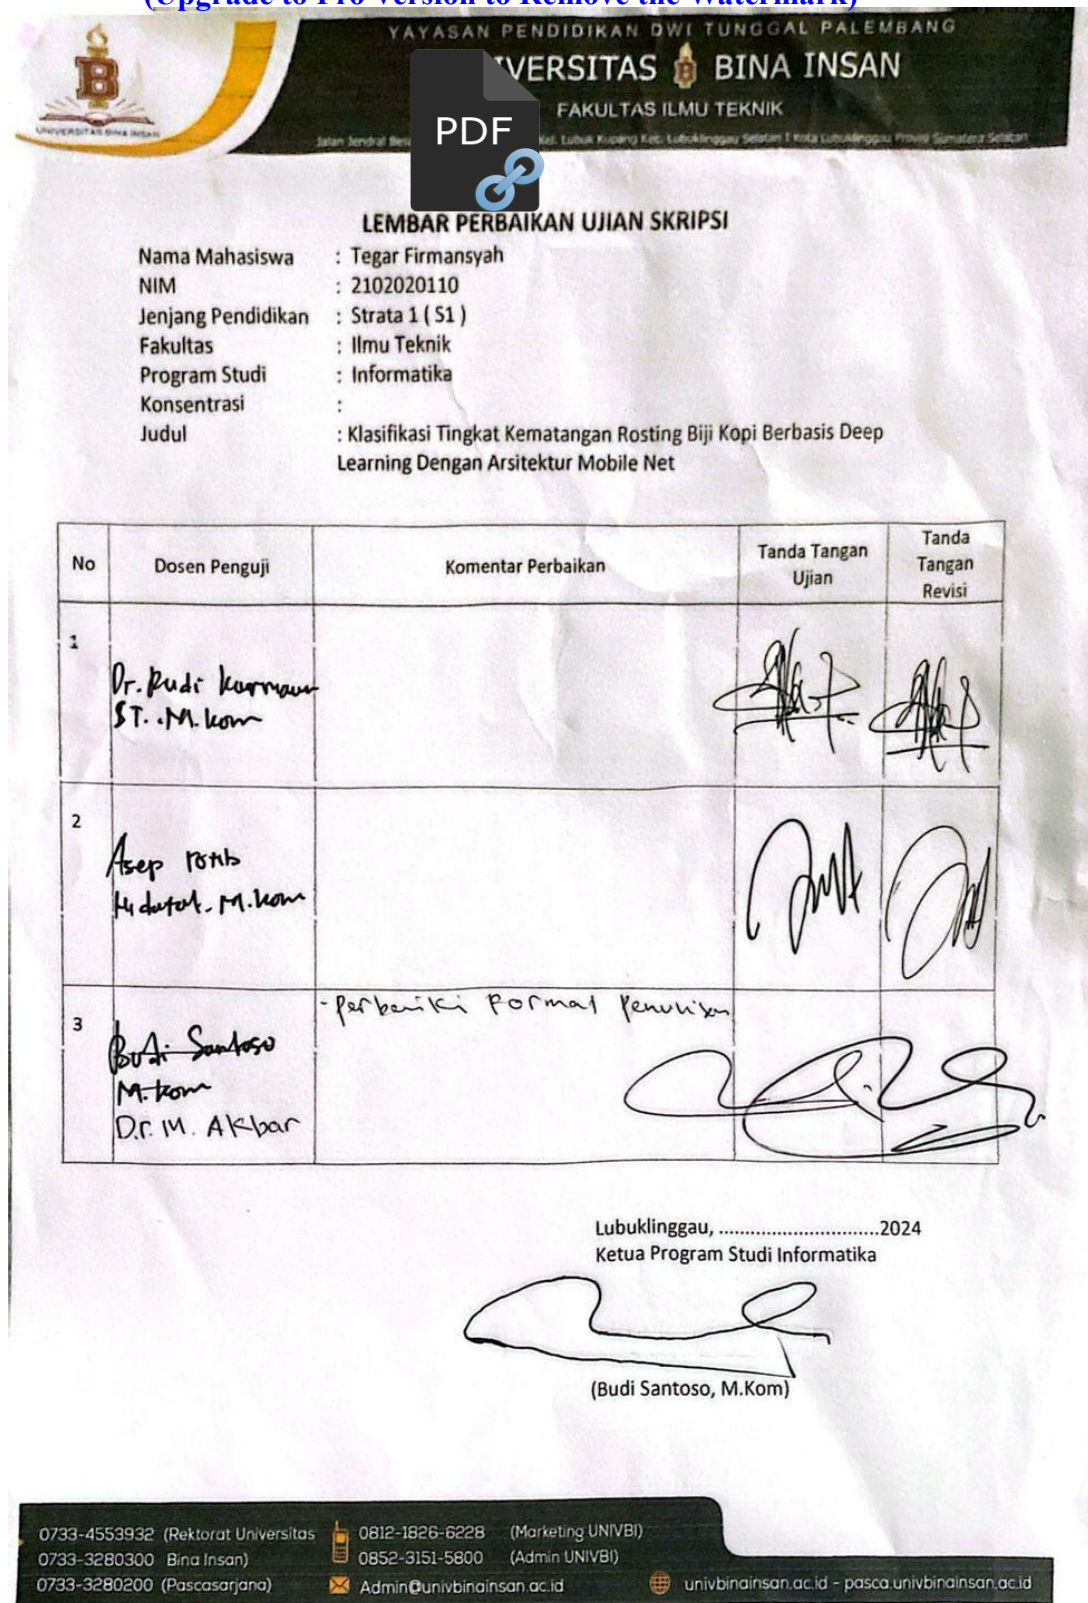 (Upgrade to Pro Version to Remove the Watermark)
YAYASAN PENDIDIKAN DWI TUNGGAL PALEMBANG
VERSITAS BINA INSAN
FAKULTAS ILMU TEKNIK
UNIVERSITAS BINA INSAN
Jalan Jendral Kel. Lubuk Kupang Kec. Lubuklinggau Selatan 1 Kota Lubuklinggau Provisi Sumatera Selatan
PDF
LEMBAR PERBAIKAN UJIAN SKRIPSI
Nama Mahasiswa : Tegar Firmansyah
NIM : 2102020110
Jenjang Pendidikan : Strata 1 ( S1 )
Fakultas : Ilmu Teknik
Program Studi : Informatika
Konsentrasi :
Judul : Klasifikasi Tingkat Kematangan Rosting Biji Kopi Berbasis Deep
Learning Dengan Arsitektur Mobile Net
No Dosen Penguji Komentar Perbaikan Tanda Tangan Ujian Tanda Tangan Revisi
1
Dr. Rudi Kurniawan
ST., M.kom
2
Asep
M.kom
3
- Perbaiki Format Penulisan
Budi Santoso
M.kom
Dr. M. Akbar
Lubuklinggau, ............................2024
Ketua Program Studi Informatika
(Budi Santoso, M.Kom)
0733-4553932 (Rektorat Universitas
0733-3280300 Bina Insan)
0733-3280200 (Pascasarjana)
0812-1826-6228 (Marketing UNIVBI)
0852-3151-5800 (Admin UNIVBI)
Admin@univbinainsan.ac.id
univbinainsan.ac.id - pasca.univbinainsan.ac.id